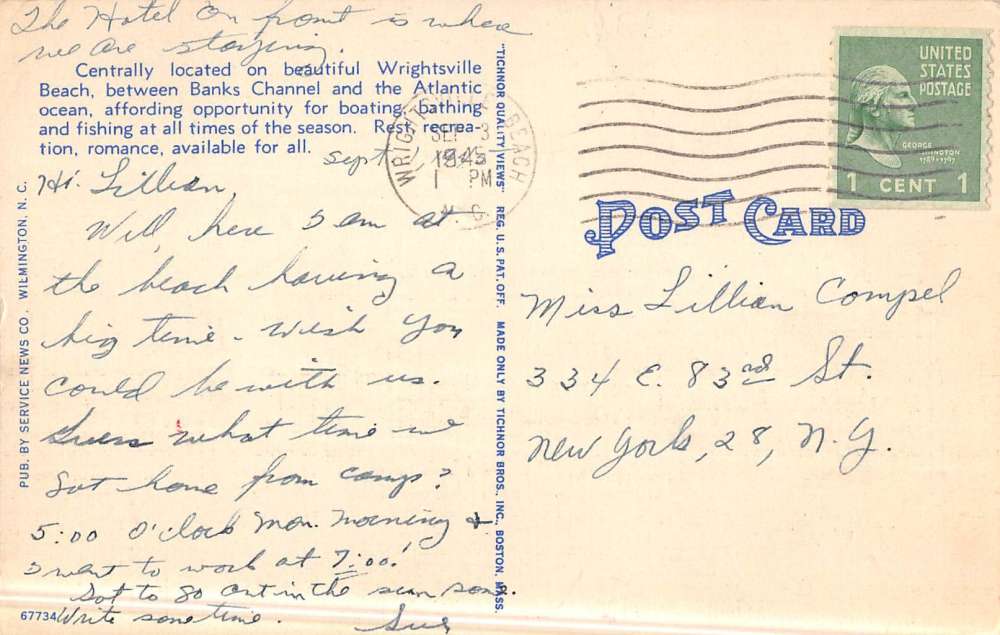 The Hotel on front is where
we are staying.
Centrally located on beautiful Wrightsville
Beach, between Banks Channel and the Atlantic
ocean, affording opportunity for boating, bathing
and fishing at all times of the season. Rest, recrea-
tion, romance, available for all.
Sept
Hi Lillian,
Well, here I am at
the beach having a
big time. Wish you
could be with us.
Guess what time we
got home from camp?
5:00 O'clock Mon. morning +
I went to work at 7:00!
Got to go out in the sun soon.
Write sometime. Sue
67734
PUB. BY SERVICE NEWS CO. WILMINGTON, N. C.
"TICHNOR QUALITY VIEWS" REG. U. S. PAT. OFF. MADE ONLY BY TICHNOR BROS., INC., BOSTON, MASS.
WRIGHTSVILLE BEACH
SEP 3
1945
1 PM
N. C.
UNITED
STATES
POSTAGE
GEORGE
WASHINGTON
1789-1797
1 CENT 1
POST CARD
Miss Lillian Compel
334 E. 83rd St.
New York, 28, N.Y.